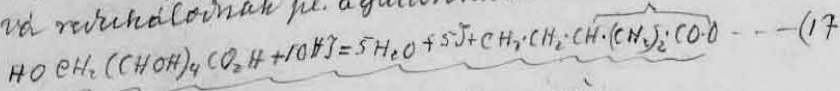 vá redukálódnak pl. a
HO CH₂ (CHOH)₄ CO₂H + 10HJ = 5H₂O + 5J + CH₃·CH₂·CH·(CH₂)₂·CO·O - - - (17